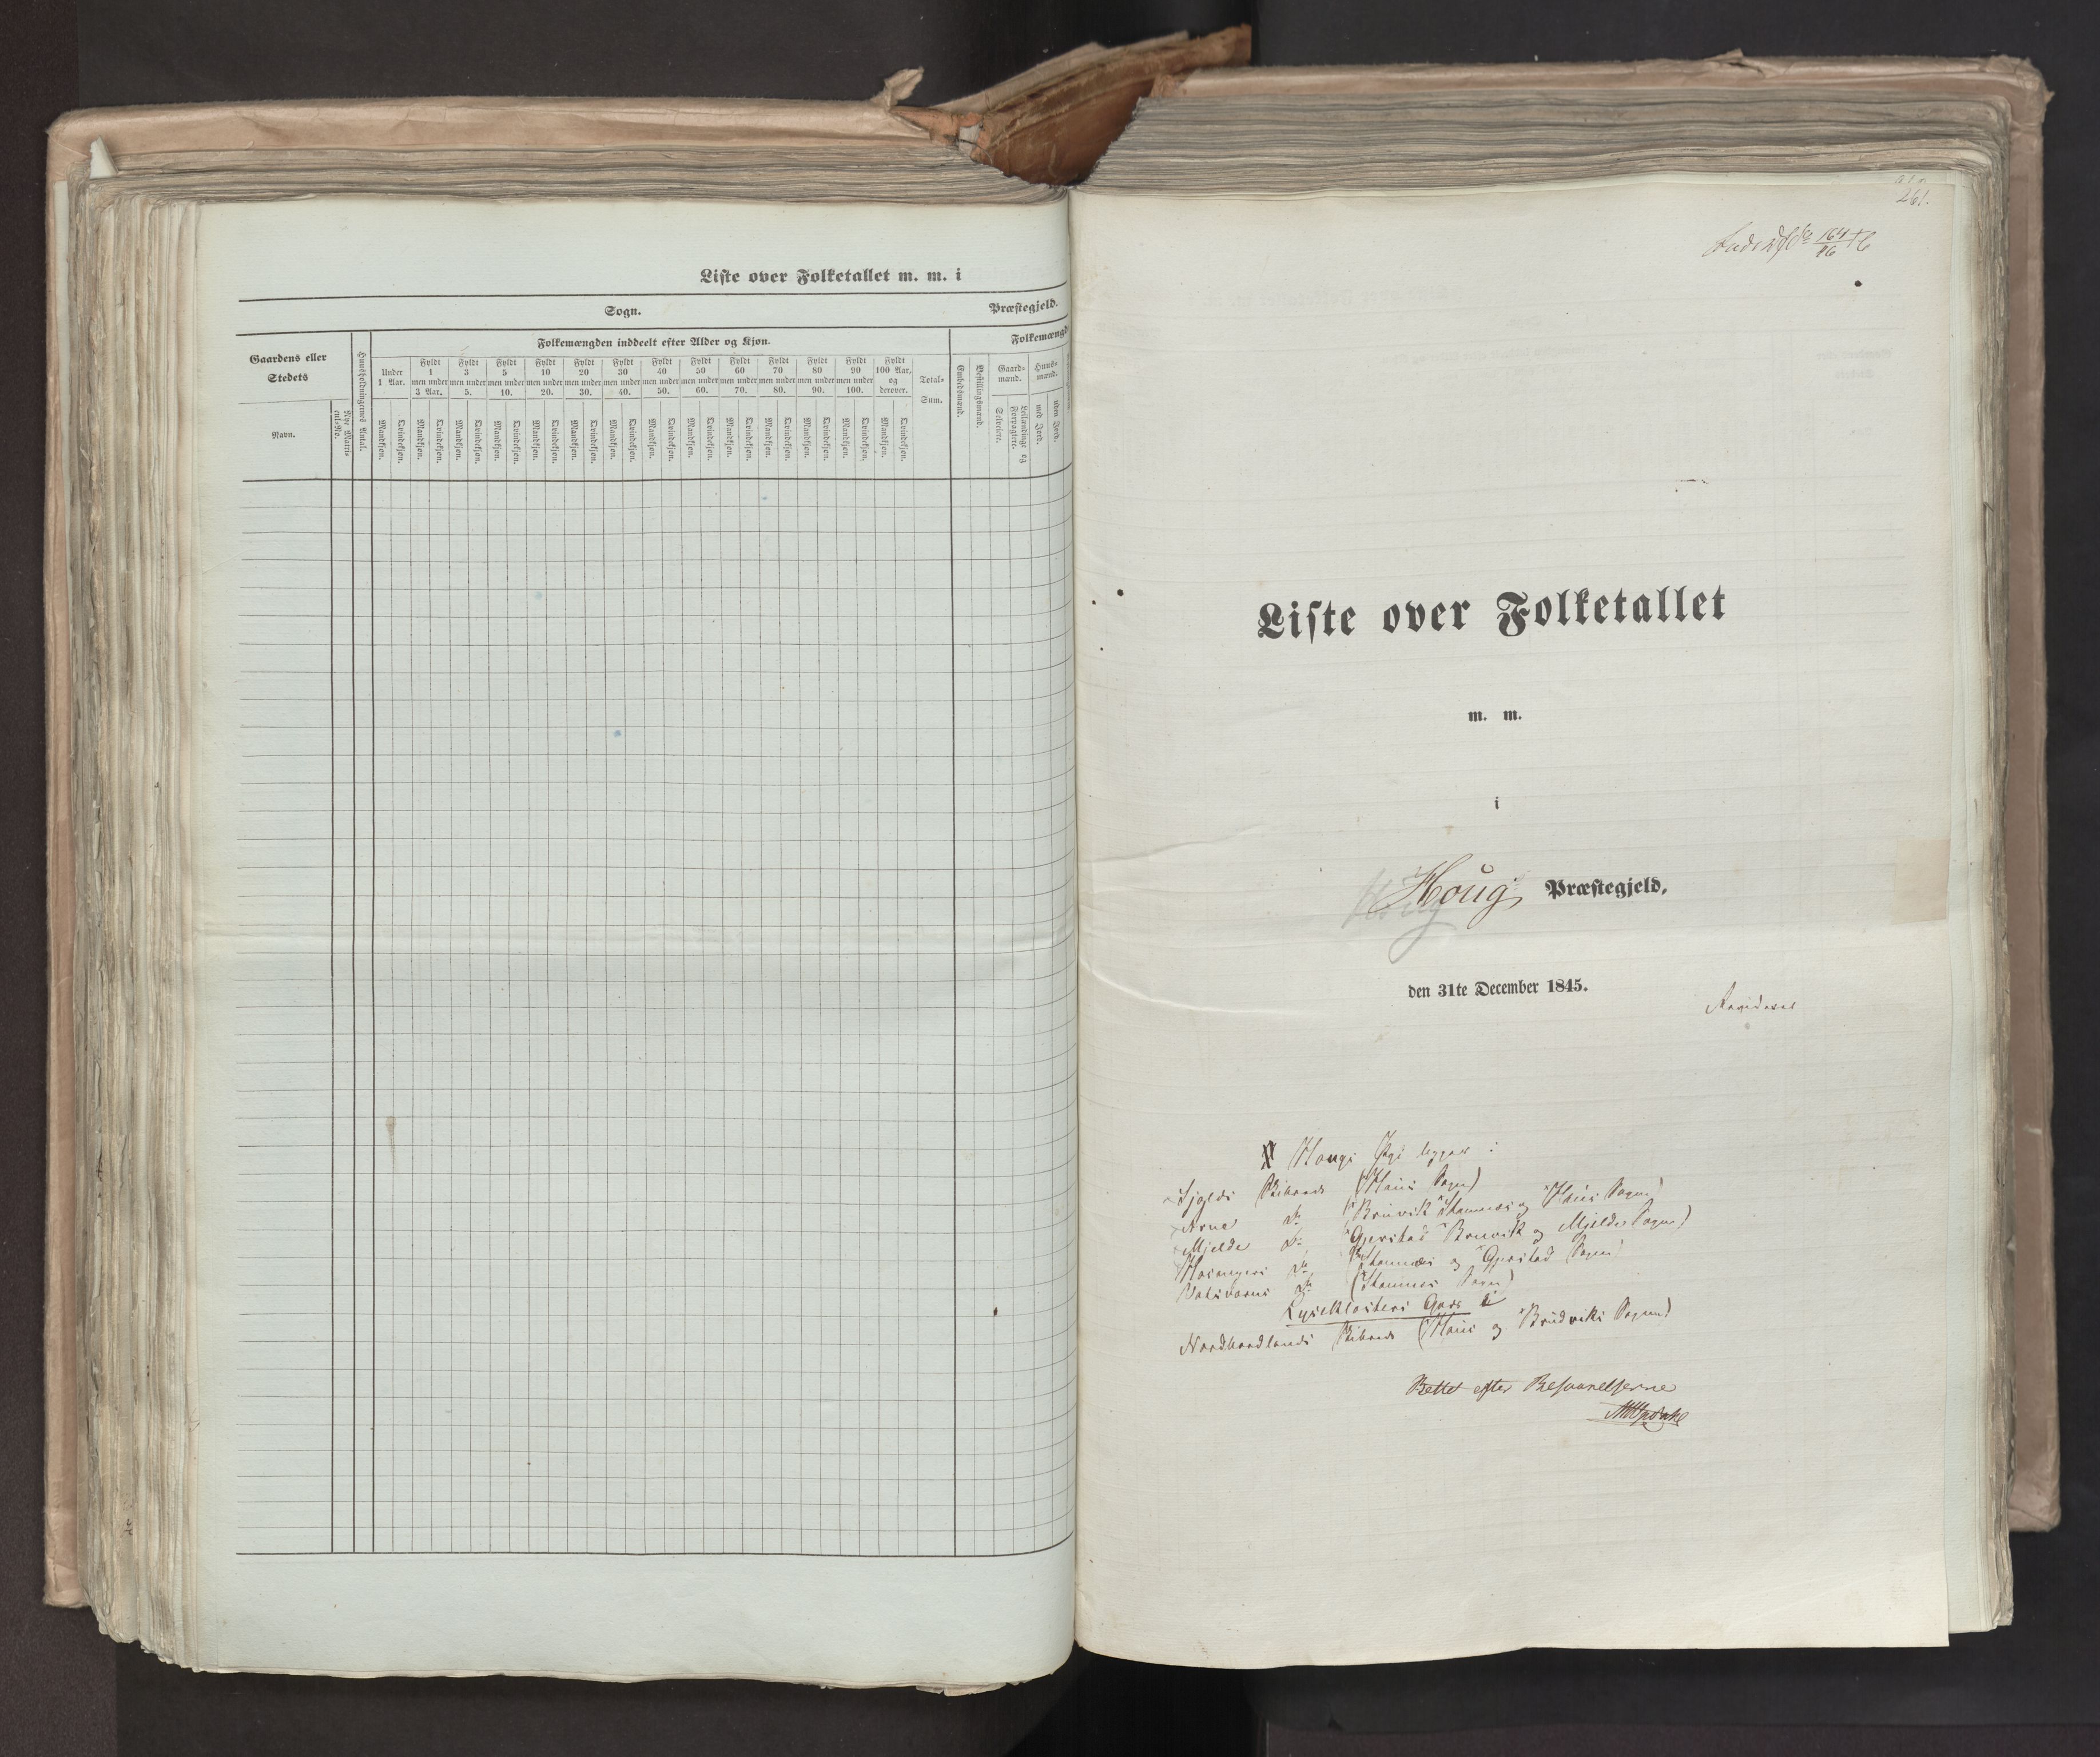 Liste over Folketallet m. m. i
Sogn. Præstegjeld.
Gaardens eller
Stedets
Navn.
Nye Matri-
cul-No.
Husholdningernes Antal.
Folkemængden inddeelt efter Alder og Kjøn.
Folkemængd
Under
1 Aar.
Fyldt
1
men under
3 Aar.
Fyldt
3
men under
5.
Fyldt
5
men under
10.
Fyldt
10
men under
20.
Fyldt
20
men under
30.
Fyldt
30
men under
40.
Fyldt
40
men under
50.
Fyldt
50
men under
60.
Fyldt
60
men under
70.
Fyldt
70
men under
80.
Fyldt
80
men under
90.
Fyldt
90
men under
100.
Fyldt
100 Aar,
og
derover.
Mandkjøn. Qvindekjøn. Mandkjøn. Qvindekjøn. Mandkjøn. Qvindekjøn. Mandkjøn. Qvindekjøn. Mandkjøn. Qvindekjøn. Mandkjøn. Qvindekjøn. Mandkjøn. Qvindekjøn. Mandkjøn. Qvindekjøn. Mandkjøn. Qvindekjøn. Mandkjøn. Qvindekjøn. Mandkjøn. Qvindekjøn. Mandkjøn. Qvindekjøn. Mandkjøn. Qvindekjøn. Mandkjøn. Qvindekjøn.
Total-
Sum.
Embedsmænd.
Bestillingsmænd.
Gaard-
mænd.
Selveiere.
Leilændinge og
Forpagtere.
Huus-
mænd.
med Jord.
uden Jord.
261.
Liste over Folketallet
m. m.
i
Houg Præstegjeld,
den 31te December 1845.
Revideret
Hougs Pgj ligger:
Skibrede (Haus Sogn)
Arne do (Bruvik Stamnes og Haus Sogne)
Mjelde do (Gjerstad Bruvik og Mjelde Sogne)
Mosangers do (Stamnes og Gjerstad Sogne)
do (Stamnes Sogn)
Lyseklosters Gods i
Nordhordlands Skibrede (Haus og Brudviks Sogne)
Rettet efter Besvarelserne